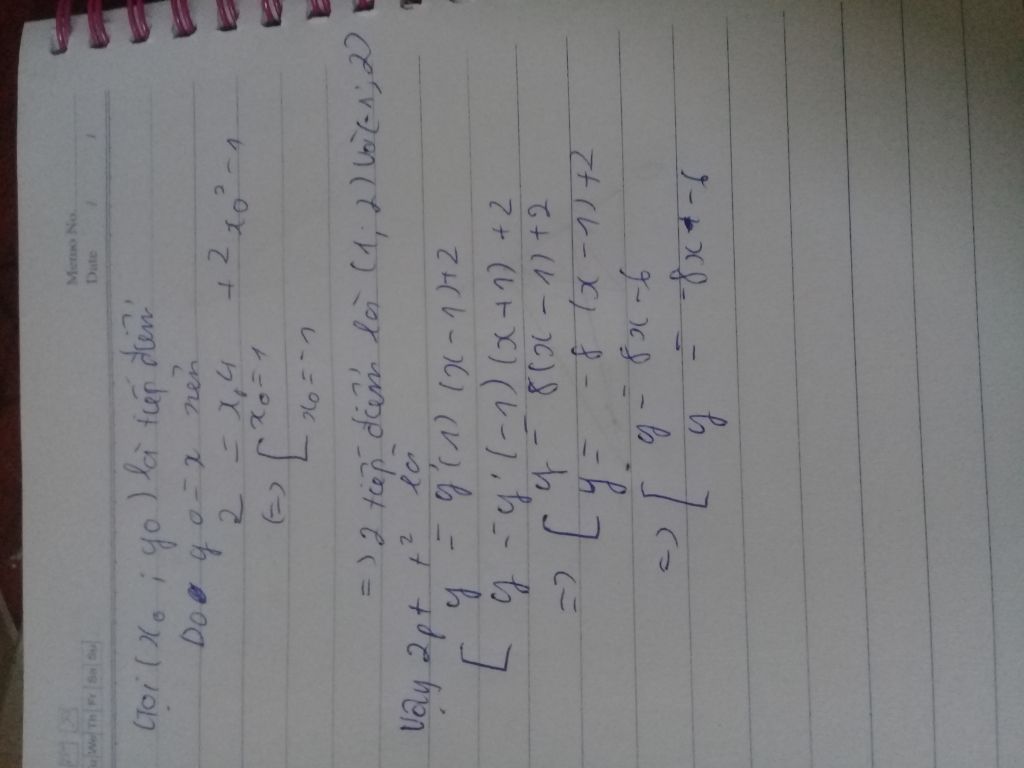 Memo No.
Date / /
Mo Tu We Th Fr Sa Su
Gọi (x₀ ; y₀) là tiếp điểm
Do y₀ = x nên
2 = x₀⁴ + 2x₀² - 1
(=> [ x₀ = 1
x₀ = -1
=> 2 tiếp điểm là (1; 2) và (-1; 2)
Vậy 2pt t² là
[ y = y'(1) (x - 1) + 2
y = y'(-1) (x + 1) + 2
=> [ y = 8(x - 1) + 2
y = -8 (x - 1) + 2
=> [ y = 8x - 6
y = -8x - 6